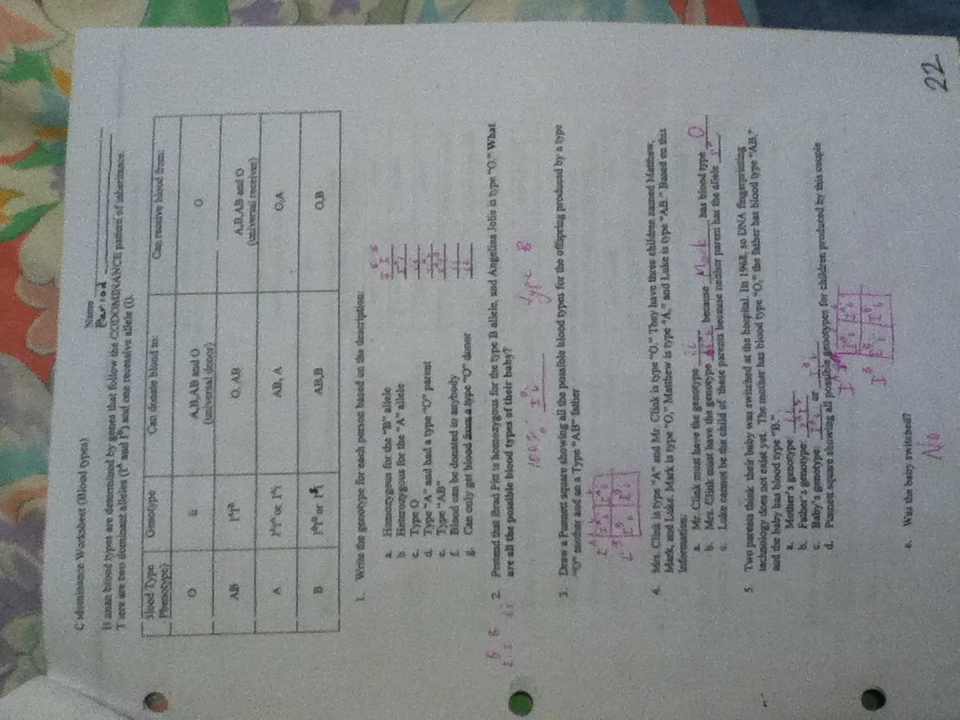 Codominance Worksheet (Blood types)
Name
Period
Human blood types are determined by genes that follow the CODOMINANCE pattern of inheritance.
There are two dominant alleles (Iᴬ and Iᴮ) and one recessive allele (i).
Blood Type Genotype Can donate blood to: Can receive blood from:
(Phenotype)
O ii A,B,AB and O O
(universal donor)
AB IᴬIᴮ O, AB A,B,AB and O
(universal receiver)
A IᴬIᴬ or Iᴬi AB, A O,A
B or AB,B O,B
1. Write the genotype for each person based on the description:
a. Homozygous for the "B" allele Iᴮ Iᴮ
b. Heterozygous for the "A" allele Iᴬi
c. Type O ii
d. Type "A" and had a type "O" parent Iᴬi
e. Type "AB" IᴬIᴮ
f. Blood can be donated to anybody ii
g. Can only get blood from a type "O" donor ii
Iᴮ Iᴮ ii
2. Pretend that Brad Pitt is homozygous for the type B allele, and Angelina Jolie is type "O." What
are all the possible blood types of their baby?
100% Iᴮi type B
3. Draw a Punnett square showing all the possible blood types for the offspring produced by a type
"O" mother and an a Type "AB" father
i i
Iᴬ Iᴬi Iᴬi
Iᴮ Iᴮi Iᴮi
4. Mrs. Clink is type "A" and Mr. Clink is type "O." They have three children named Matthew,
Mark, and Luke. Mark is type "O," Matthew is type "A," and Luke is type "AB." Based on this
information:
a. Mr. Clink must have the genotype ii
b. Mrs. Clink must have the genotype Iᴬi because Mark has blood type O
c. Luke cannot be the child of these parents because neither parent has the allele Iᴮ
5. Two parents think their baby was switched at the hospital. Its 1968, so DNA fingerprinting
technology does not exist yet. The mother has blood type "O," the father has blood type "AB,"
and the baby has blood type "B."
a. Mother's genotype: ii
b. Father's genotype: IᴬIᴮ
c. Baby's genotype: or Iᴮi
d. Punnett square showing all possible genotypes for children produced by this couple
Iᴬ Iᴬi Iᴬi
Iᴮ Iᴮi Iᴮi
e. Was the baby switched?
No
22